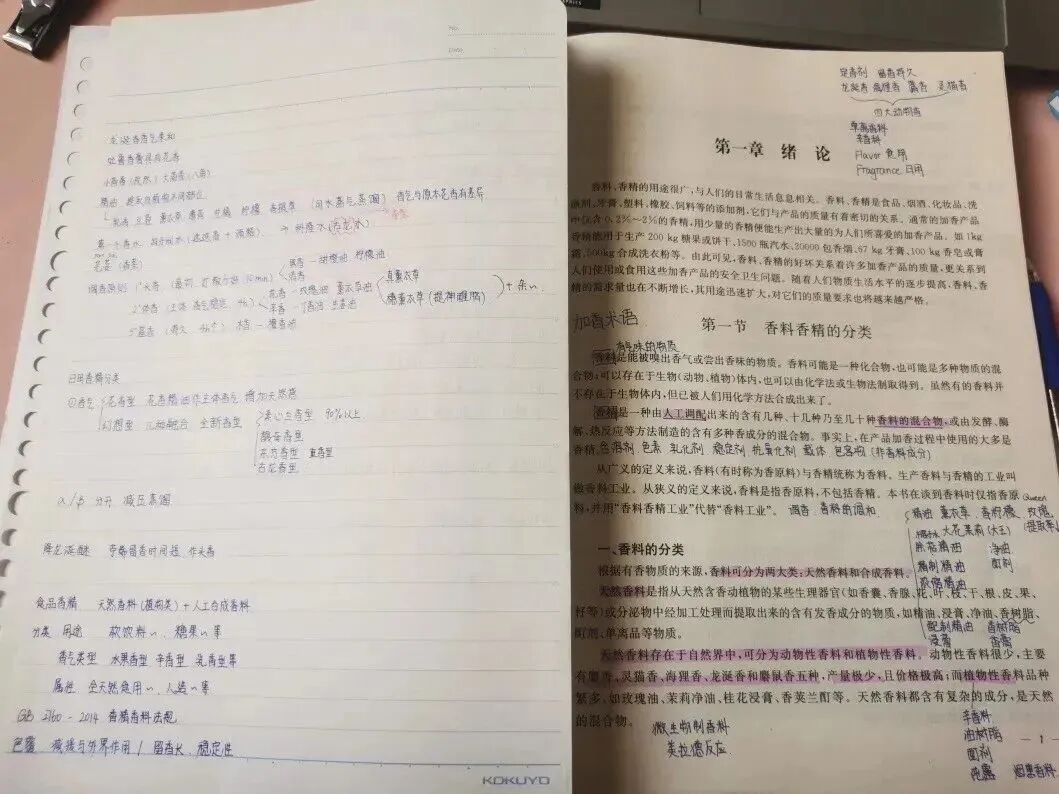 No.
Date
龙涎香香气柔和
处麝香兼具麻花香
小茴香(孜然) 大茴香(八角)
精油 提取自植物不同部位
乳香 豆蔻 薰衣草 檀香 甘菊 柠檬 香根草 (同水蒸气蒸馏) 香气与原本花香有差异
第一个香水 匈牙利水(迷迭香+酒精) → 科隆水(古龙水)
花萃(香荚)
调香原则 1°头香 (最前, 扩散力强 10min) 果香—甜橙油 柠檬油
清香
2°体香 (主体 香气稳定 4h) 花香—玫瑰油 薰衣草油 真薰衣草
穗薰衣草(提神醒脑) +杂~
辛香—丁香油 生姜油
3°基香 (持久 4h↑) 木香—檀香油
日用香精分类
①香气 花香型 花香精油作主体香气 增加天然感
幻想型 几种融合 全新香型
素心兰香型 90%以上
馥奇香型
东方香型 重香型
古龙香型
α/β 分开 减压蒸馏
降龙涎醚 草 留香时间短 作头香
食品香精 天然香料(植物类)+人工合成香料
分类 用途 软饮料~ 糖果~等
香气类型 水果香型 辛香型 乳香型等
属性 全天然食用~ 人造~等
GB 2760-2014 香精香料法规
包覆 减缓与外界作用/留香长 稳定性
KOKUYO
定香剂 留香持久
龙涎香 海狸香 麝香 灵猫香
四大动物香
草蒿香料
辛香料
Flavor 食用
Fragrance 日用
第一章 绪 论
香料、香精的用途很广,与人们的日常生活息息相关。香料、香精是食品、烟酒、化妆品、洗
涤剂、牙膏、塑料、橡胶、饲料等的添加剂,它们与产品的质量有着密切的关系。通常的加香产品
种仅含 0.3%~2%的香精,用少量的香精便能生产出大量的为人们所喜爱的加香产品。如 1kg
香精能用于生产 200 kg 糖果或饼干、1500 瓶汽水、20000 包香烟、67 kg 牙膏、100 kg 香皂或膏
霜、500kg 合成洗衣粉等。由此可见,香料、香精的好坏关系着许多加香产品的质量,更关系到
人们使用或食用这些加香产品的安全卫生问题。随着人们物质生活水平的逐步提高,香料、香
精的需求量也在不断增长,其用途迅速扩大,对它们的质量要求也将越来越严格。
加香术语
第一节 香料香精的分类
有气味的物质
香料是能被嗅出香气或尝出香味的物质。香料可能是一种化合物,也可能是多种物质的混
合物,可以存在于生物(动物、植物)体内,也可以由化学法或生物法制取得到。虽然有的香料并
不存在于生物体内,但已被人们用化学方法合成出来了。
香精是一种由人工调配出来的含有几种、十几种乃至几十种香料的混合物,或由发酵、酶
解、热反应等方法制造的含有多种香成分的混合物。事实上,在产品加香过程中使用的大多是
香精。
溶剂 色素 乳化剂 稳定剂 抗氧化剂 载体 包容物(非香料成分)
从广义的定义来说,香料(有时称为香原料)与香精统称为香料。生产香料与香精的工业叫
做香料工业。从狭义的定义来说,香料是指香原料,不包括香精。本书在谈到香料时仅指香原
料,并用“香料香精工业”代替“香料工业”。
调香 香料的调和
Queen
精油 薰衣草 香柠檬 玫瑰
大花茉莉(大王) (提取率)
除萜精油 净油
精制精油 酊剂
浓缩精油
配制精油 香树脂
浸膏 香膏
一、香料的分类
根据有香物质的来源,香料可分为两大类:天然香料和合成香料。
天然香料是指从天然含香动植物的某些生理器官(如香囊、香腺、花、叶、枝、干、根、皮、果、
籽等)或分泌物中经加工处理而提取出来的含有发香成分的物质,如精油、浸膏、净油、香树脂、
酊剂、单离品等物质。
天然香料存在于自然界中,可分为动物性香料和植物性香料。动物性香料很少,主要
有麝香、灵猫香、海狸香、龙涎香和麝鼠香五种,产量极少,且价格极高;而植物性香料品种
繁多,如玫瑰油、茉莉净油、桂花浸膏、香荚兰酊等。天然香料都含有复杂的成分,是天然
的混合物。
微生物制香料
美拉德反应
辛香料
油树脂
酊剂
纯露 烟熏香料
— 1